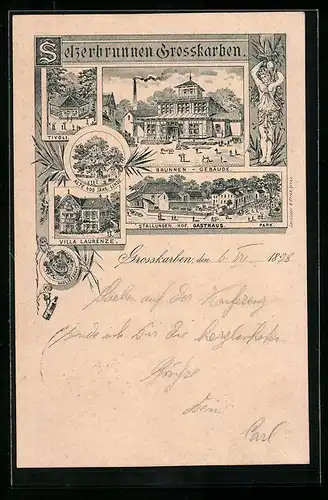 Selzerbrunnen Grosskarben.
TIVOLI.
BRUNNEN - GEBÄUDE.
ALTE 400 JÄHR. LINDE
VILLA LAURENZE.
STALLUNGEN. HOF. GASTHAUS. PARK.
Grosskarben, den 6 VII 1898
Soeben auf der Konferenz
sende ich Dir die herzlichsten
Grüsse
Dein
Carl